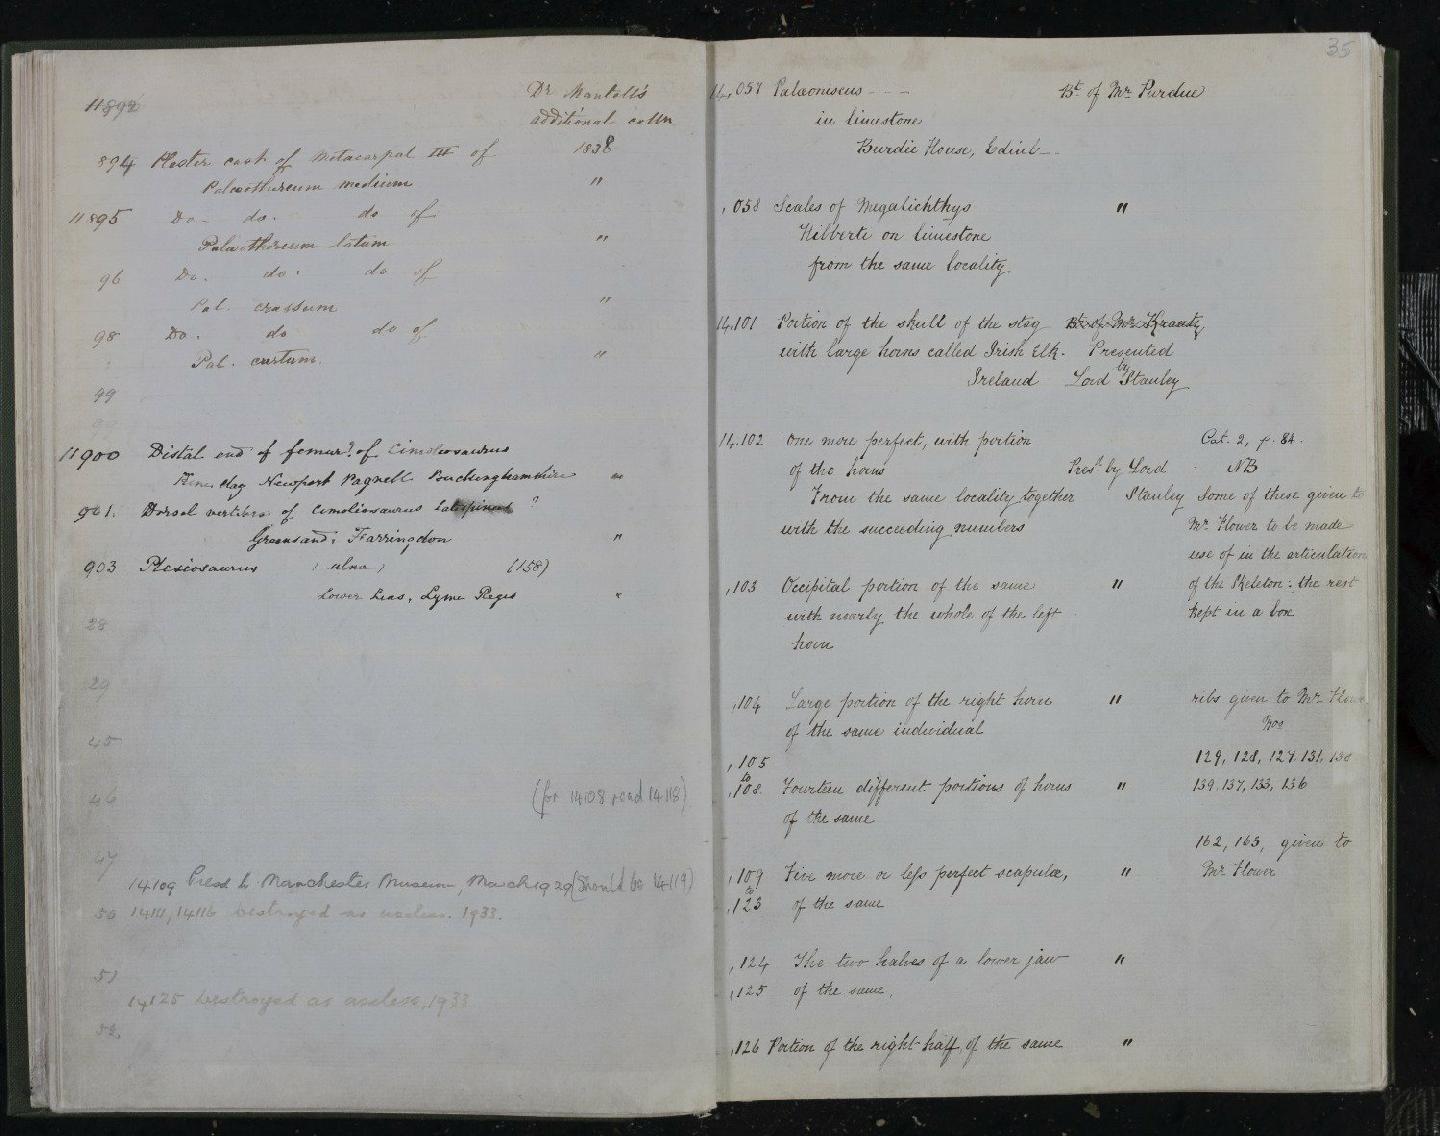 11892
Dr Mantell's
additional colln
894 Plaster cast of Metacarpal III of 1838
Palæothereum medium "
11895 Do. do. do of
Palæothereum latum "
96 Do. do. do of
Pal. crassum "
98 Do. do do of
Pal. curtum. "
99
11900 Distal end of femur? of Cimoliosaurus
Kim. clay Newport Pagnell Buckinghamshire "
901. Dorsal vertebra of Cimoliosaurus ?
Greensand; Farringdon "
903 Plesiosaurus ulna (158)
Lower Lias, Lyme Regis "
28
29
45
46 (for 14108 read 14118)
47
14109 Presd to Manchester Museum, March 1929 (Should be 14119)
50 14111, 14116 destroyed as useless. 1933.
51
14125 destroyed as useless, 1933
52
35
14,057 Palæoniscus - - - Bt of Mr Purdue
in limestone
Burdie House, Edinb
,058 Scales of Megalichthys "
Hilberti on limestone
from the same locality.
14,101 Portion of the skull of the stag Bt of Mr Krantz
with large horns called Irish Elk. Presented
by
Ireland Lord Stanley
14,102 One more perfect, with portion Cat. 2, p. 84.
of the horns Prest by Lord NB
From the same locality together Stanley Some of these given to
with the succeeding numbers Mr Flower to be made
use of in the articulation
,103 Occipital portion of the same " of the Skeleton: the rest
with nearly the whole of the left kept in a box
horn
,104 Large portion of the right horn " ribs given to Mr Flower
of the same individual Nos
,105 129, 128, 127, 131, 138
to
,108. Fourteen different portions of horns " 139, 137, 133, 136
of the same
162, 163, given to
,109 Five more or less perfect scapulæ, " Mr Flower
to
,123 of the same
,124 The two halves of a lower jaw "
,125 of the same.
,126 Portion of the right half, of the same "